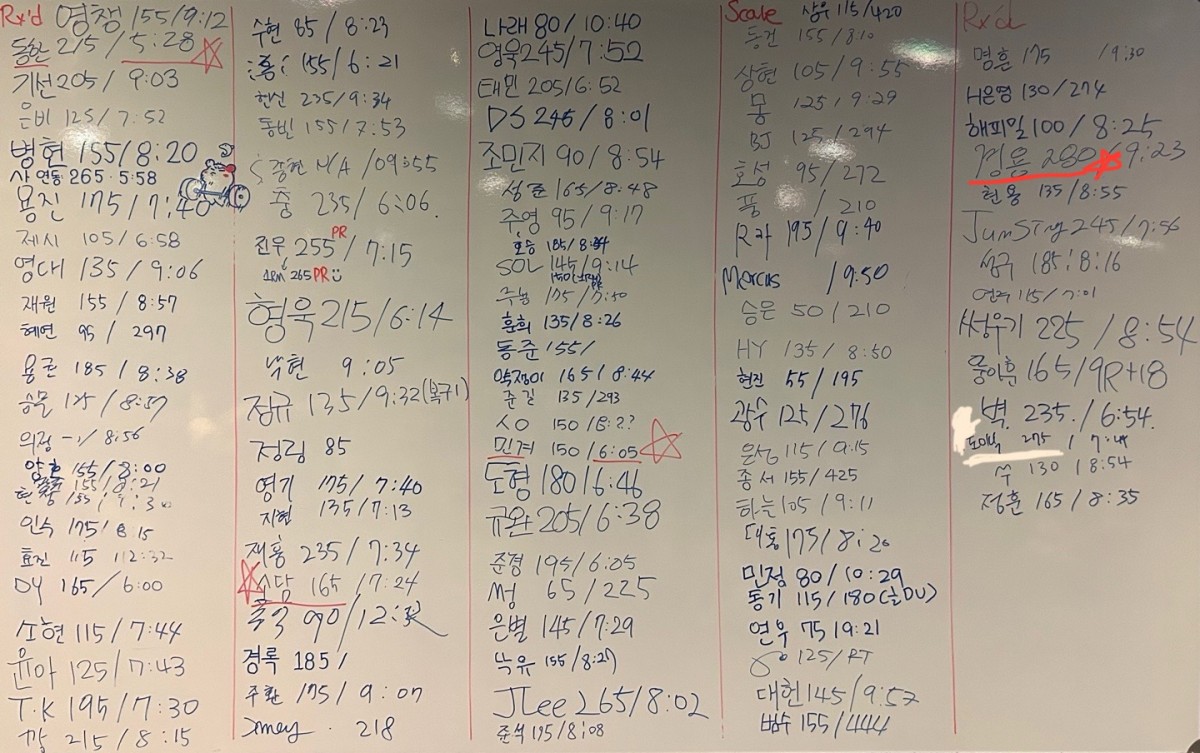 Rx'd 영챙 155/9:12
돌한 215/5:28
기선 205/9:03
은비 125/7:52
병현 155/8:20
샤 연동 265·5:58
용진 175/7:40
제시 105/6:58
영대 135/9:06
재원 155/8:57
혜연 95/297
용근 185/8:38
승몰 125/8:57
의정 -/8:56
155/8:00
155/8:21
인수 175/8:15
효진 115/12:32
DY 165/6:00
소현 115/7:44
윤아 125/7:43
T.K 195/7:30
깡 215/8:15
수현 85/8:23
155/6:21
헌신 235/9:34
동빈 155/7:53
중현 N/A/09:55
춤 235/6:06
진우 255 PR/7:15
265 PR
형욱 215/6:14
박현 9:05
정규 135/9:32(복귀1)
정림 85
영기 175/7:40
지현 135/7:13
재홍 235/7:34
담 165/7:24
90/12:
경록 185/
주환 175/9:07
Xmey. 218
나래 80/10:40
영욱 245/7:52
태민 205/6:52
DS 245/8:01
조민지 90/8:54
성준 165/8:48
주영 95/9:17
호승 185/8:34
SOL 145/9:14
훈희 135/8:26
동준 155/
약쟁이 165/8:44
준길 135/293
150/8:??
민계 150/6:05
도형 180/6:46
규완 205/6:38
준경 195/6:05
썽 65/225
은별 145/7:29
낙유 155/8:27
JLee 265/8:02
준석 195/8:08
Scale 상유 115/420
동건 155/8:10
상현 105/9:55
뭉 125/9:29
BJ 125/294
효성 95/272
품 /210
R라 195/9:40
Marcus /9:50
승은 50/210
HY 135/8:50
현진 55/195
광수 125/276
은성 115/9:15
종서 155/425
하는 105/9:11
대통 175/8:20
민정 80/10:29
동기 115/180(노DU)
연우 75/9:21
125/RT
대헌 145/9:57
범수 155/444
Rx'd
명훈 175 /9:30
H은영 130/274
해피밀 100/8:25
경용 280/9:23
현용 135/8:55
JunSTY 245/7:56
성구 185/8:16
연주 115/7:01
썽우기 225/8:54
165/9R+18
벽 235./6:54.
275/7:
130/8:54
정훈 165/8:35